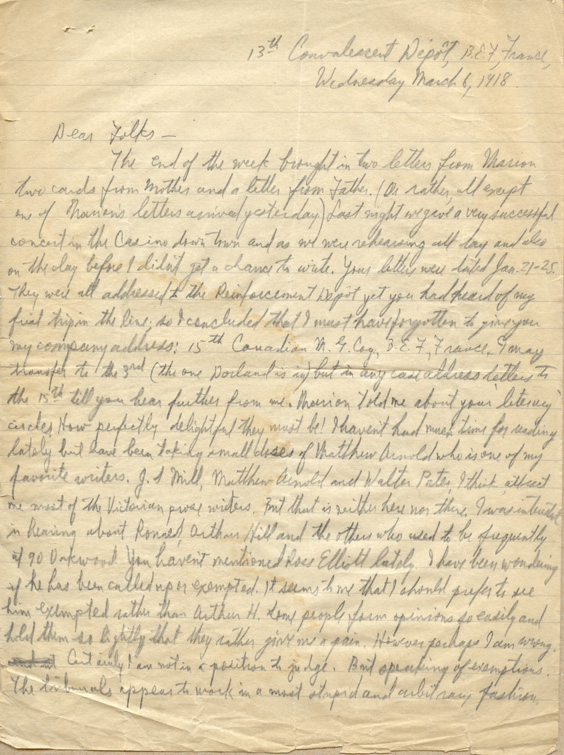 13th Convalescent Depôt, B.E.F, France,
Wednesday March 6, 1918.
Dear Folks –
The end of the week brought in two letters from Marion
two cards from Mother and a letter from Father. (Or rather, all except
one of Marion's letters arrived yesterday) Last night we gave a very successful
concert in the Casino down town and as we were rehearsing all day and also
on the day before I didn't get a chance to write. Your letters were dated Jan. 21-25
They were all addressed to the Reinforcement Depôt yet you had heard of my
first trip in the line; so I concluded that I must have forgotten to give you
my company address: 15th Canadian M. G. Coy, B.E.F, France. I may
transfer to the 3rd (the one Dorland is in) but in any case address letters to
the 15th till you hear further from me. Marion told me about your literary
circles How perfectly delightful they must be! I haven't had much time for reading
lately but have been taking small doses of Matthew Arnold who is one of my
favorite writers. J. S Mill, Matthew Arnold and Walter Pater I think attract
me most of the Victorian prose writers. But that is neither here nor there. I was
in hearing about Ronald, Arthur Hill and the others who used to be frequently
at 90 Oakwood. You haven't mentioned Ross Elliott lately. I have been wondering
if he has been called up or exempted. It seems to me that I should prefer to see
him exempted rather than Arthur H. Some people form opinions so easily and
hold them so lightly that they rather give me a pain. However perhaps I am wrong.
Certainly I am not in a position to judge. But speaking of exemptions.
The tribunals appear to work in a most stupid and arbitrary fashion.